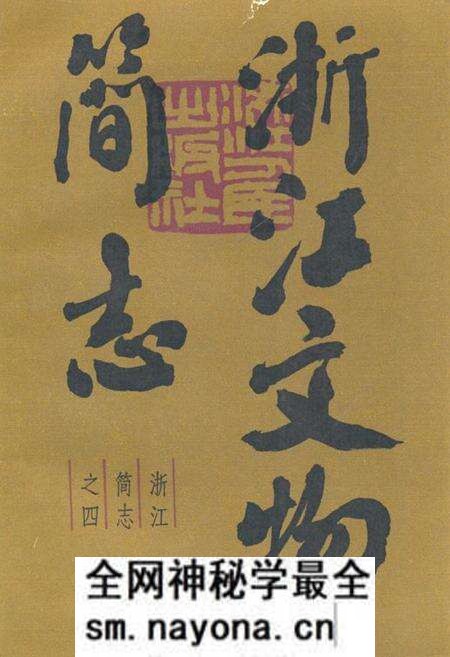 浙江文物
简志
浙江人民
出版社
浙江
简志
之四
全网神秘学最全
sm.nayona.cn